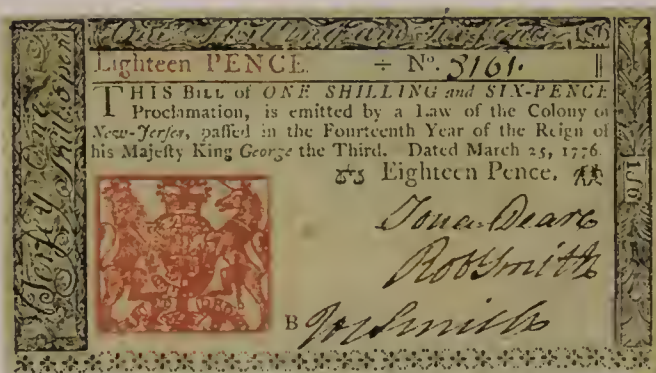 One Shilling and Six-Pence. 1s6
Jersey One Shill. & 6 pen
Eighteen PENCE. ÷ No. 3161.
THIS BILL of ONE SHILLING and SIX-PENCE
Proclamation, is emitted by a Law of the Colony of
New-Jersey, paſſed in the Fourteenth Year of the Reign of
his Majeſty King George the Third. Dated March 25, 1776.
Eighteen Pence.
1s6
Jona. Deare
Rob Smith
B Jos Smith